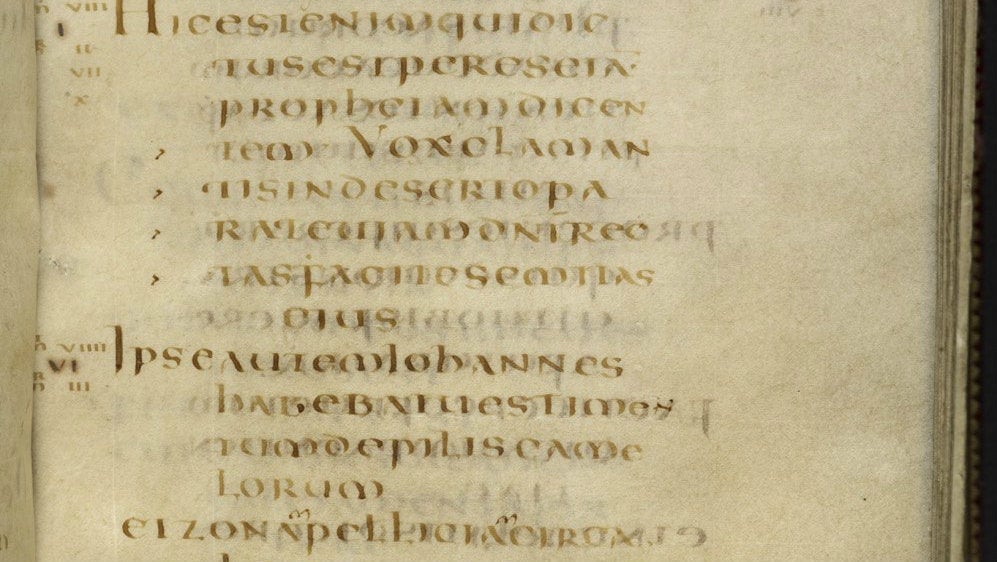 VIII
I
Hic est enim qui dic
II
tus est per eseia
VII
prophetam dicen
X
tem Vox claman
tis in deserto pa
rate uiam dni rec
tas facite semitas
eius
VIIII
Ipse autem Iohannes
VI
III
habebat uestimen
tum de pilis came
lorum
et zonam pelliciam circa